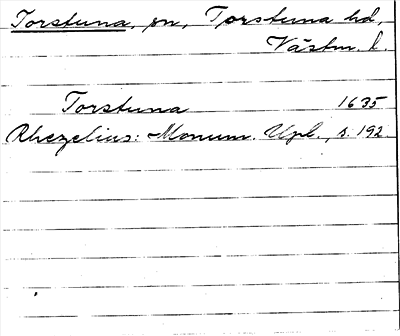 Torstuna, sn, Torstuna hd,
Västm. l.
Torstuna 1635
Rhezelius: Monum. Upl., s. 192